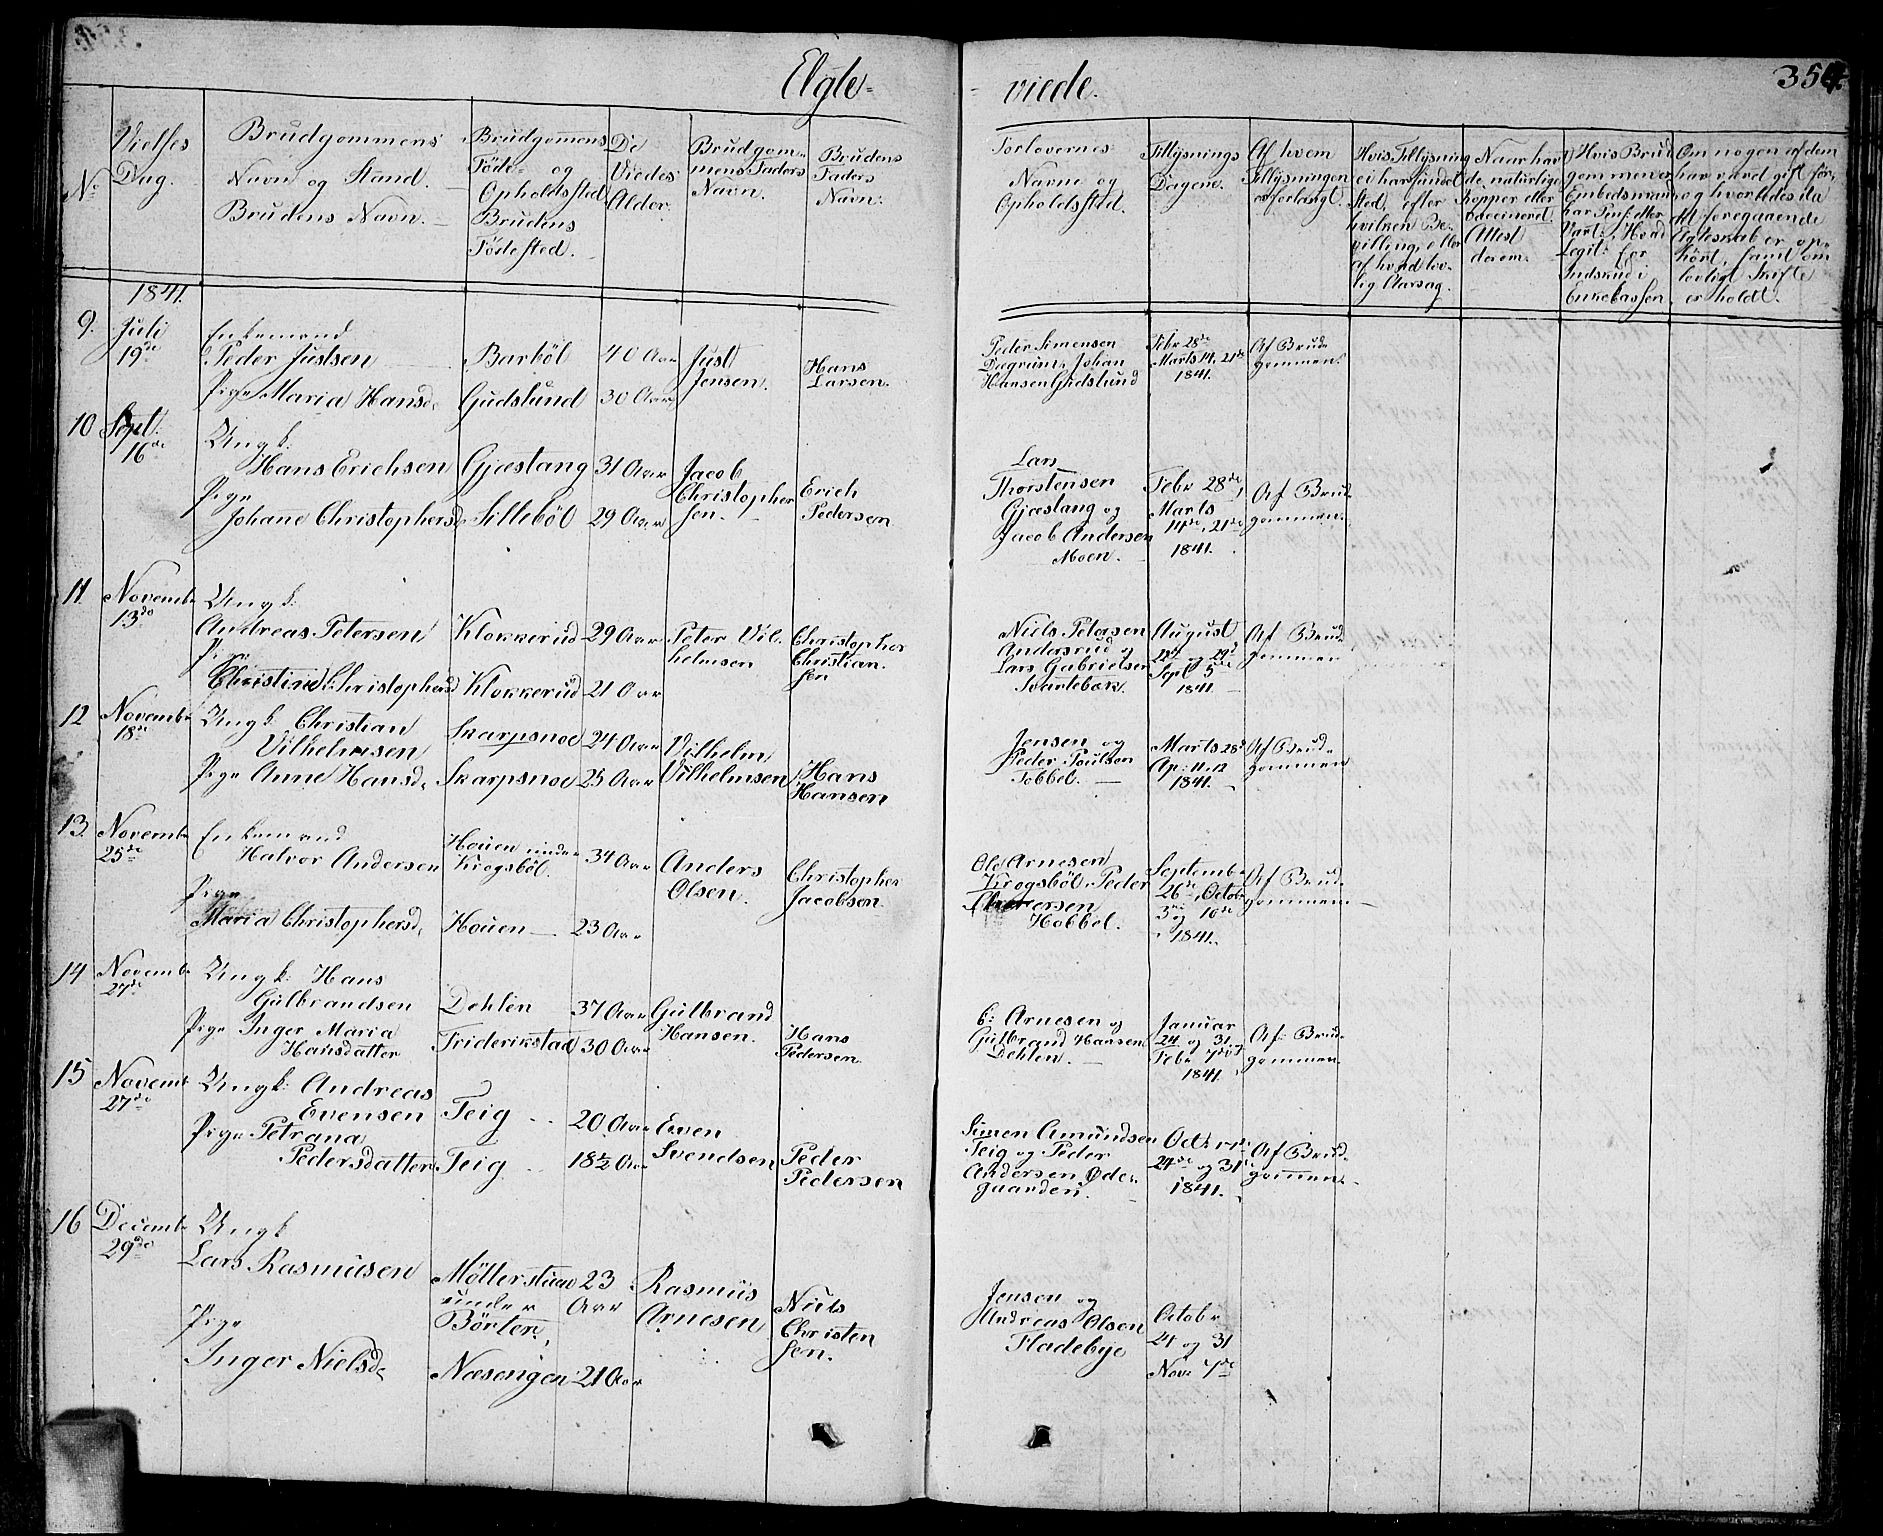 Egte-
viede.
354
No
Vielses
Dag.
Brudgommens
Navn og Stand.
Brudens Navn.
Brudgomens
Föde- og
Opholdsted
Brudens
Födested.
De
Viedes
Alder.
Brudgom-
mens Faders
Navn.
Brudens
Faders
Navn.
Forlovernes
Navne og
Opholdsted.
Tillysnings
Dagene.
Af hvem
Tillysningen
er forlangt.
Hvis Tillysning
ei har fundet
Sted, efter
hvilken Be-
villing, eller
af hvad lov-
lig Aarsag.
Naar havt
de naturlige
Kopper eller
vaccineret.
Attest
derom.
Hvis Brud
gommen er
Embedsmand
har Penk. eller
Vart: Hvad
Legit: for
Indskud i
Enkekassen.
Om nogen af dem
har været gift för,
og hvorledes da
det foregaaende
Egteskab er op-
hört, samt om
lovligt Skifte
er holdt.
1841.
9. Juli
19de
Enkemand
Peder Justsen
Pige Maria Hansd.
Barböl
Gudslund
40 Aar
30 Aar
Just
Jensen.
Hans
Larsen.
Peder Simensen
Johan
Hansen Gudslund
Febr 28de
Marts 14. 21de
1841.
Af Brud-
gommen.
10 Sept.
16de
Ungk:
Hans Erichsen
Pige
Johane Christophersd.
Gjæstang
Silleböl
31 Aar
29 Aar
Jacob
Christopher
sen.
Erich
Pedersen
Lars
Thorstensen
Gjæstang og
Jacob Andersen
Moen.
Febr 28de,
Marts
14de, 21de
1841.
Af Brud-
gommen.
11. Novemb.
13de
Ungk:
Andreas Petersen
Pige
Christine Christophersd
Klokkerud
Klokkerud
29 Aar
21 Aar
Peter Vil-
helmsen
Christopher
Christian-
sen
Niels Petersen
Andersrud og
Lars Gabrielsen
Svartebæk.
August
22de og 29de
Sept 5de
1841.
Af Brud-
gommen
12 Novemb.
18de
Ungk. Christian
Vilhelmsen
Pige Anne Hansd.
Skarpsnoe
Skarpsnoe
24 Aar
25 Aar
Vilhelm
Vilhelmsen
Hans
Hansen
Jensen og
Peder Poulsen
Marts 28de
Ap: 11. 12
1841.
Af Brud-
gommen
13. Novemb.
25de
Enkemand
Halvor Andersen
Pige
Maria Christophersd.
Houen under
Krogsböl.
Houen
34 Aar
23 Aar
Anders
Olsen.
Christopher
Jacobsen.
Ole Arnesen
Krogsböl, Peder
Hobbel.
Septemb.
26de, Octobr
3de og 10de
1841.
Af Brud-
gommen
14 Novemb.
27de
Ungk: Hans
Gulbrandsen
Pige Inger Maria
Hansdatter
Dehlen
Friderikstad
37 Aar
30 Aar
Gulbrand
Hansen.
Hans
Pedersen.
Arnesen og
Gulbrand Hansen
Dehlen.
Januar
24 og 31
Febr 7de
1841.
Af: Brud-
gommen
15 Novemb.
27de
Ungk: Andreas
Evensen
Pige Petrana
Pedersdatter
Teig
Teig
20 Aar
18½ Aar
Even
Svendsen
Peder
Pedersen
Simen Amundsen
Teig og Peder
Andersen Öde-
gaarden.
Octbr 17de
24de og 31
1841.
Af Brud-
gommen
16 Decemb.
29de
Ungk
Lars Rasmusen
Pige
Inger Nielsd.
Möllerstuen
under
Börter,
Næsengen
23
Aar
21 Aar
Rasmus
Arnesen
Niels
Christen
sen.
Jensen og
Andreas Olsen
Fladebye
Octobr
24 og 31
Novr 7de